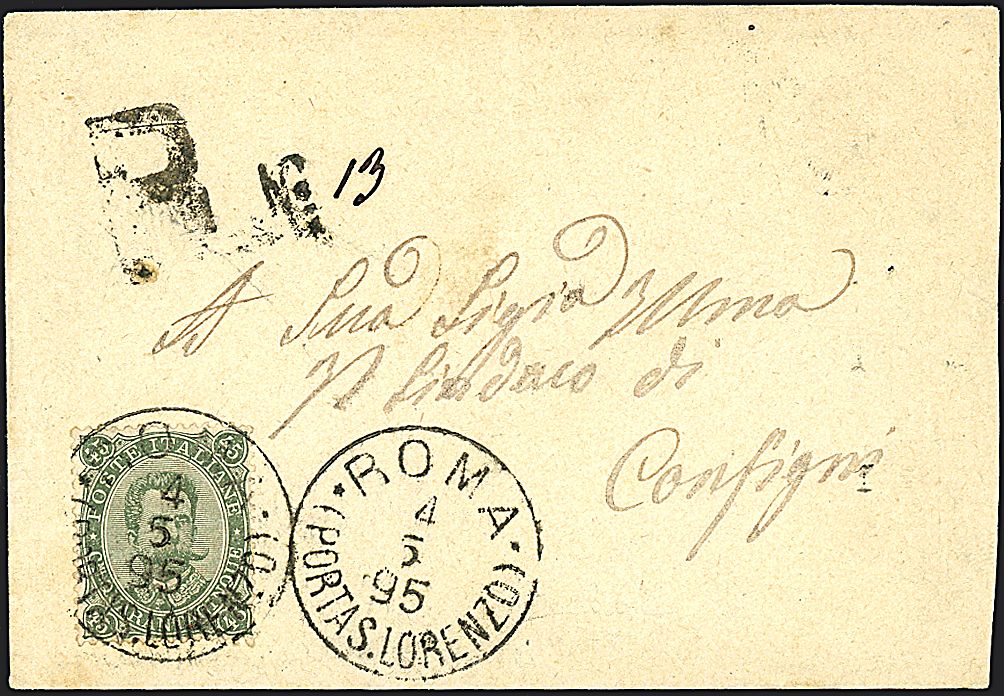 R N° 13
A Sua Sigia Illma
Il Sindaco di
Configni
45 45
POSTE ITALIANE
45 45
O
4
5
95
S. LORENZO)
* ROMA *
4
5
95
(PORTA S. LORENZO)